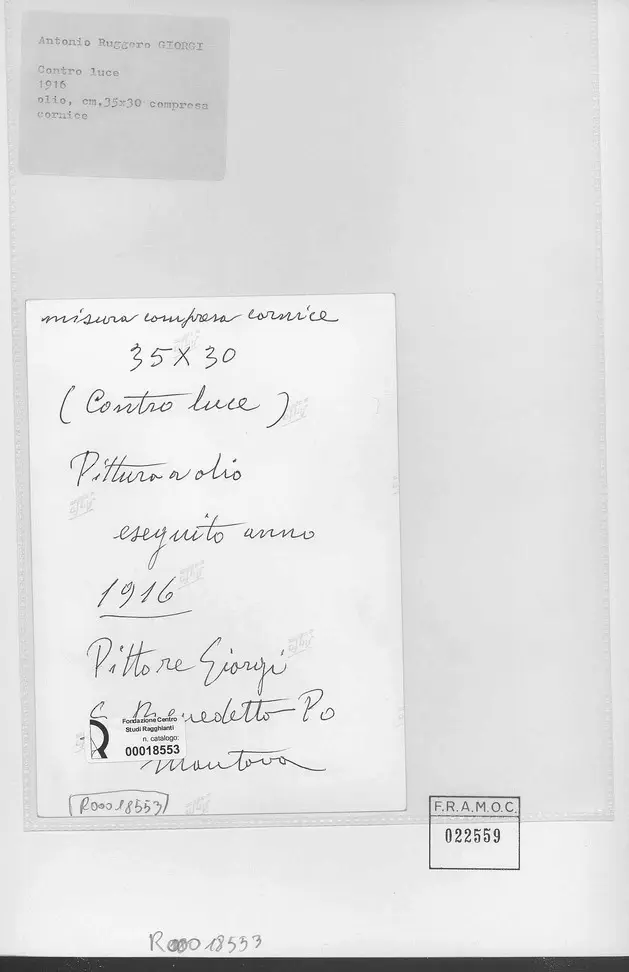 Antonio Ruggero GIORGI
Contro luce
1916
olio, cm.35x30 compresa
cornice
misura compresa cornice
35 X 30
(Contro luce)
Pittura a olio
eseguito anno
1916
Pittore Giorgi
S. Benedetto Po
Fondazione Centro
Studi Ragghianti
n. catalogo:
00018553
Mantova
R00018553
F.R.A.M.O.C.
022559
R00018553